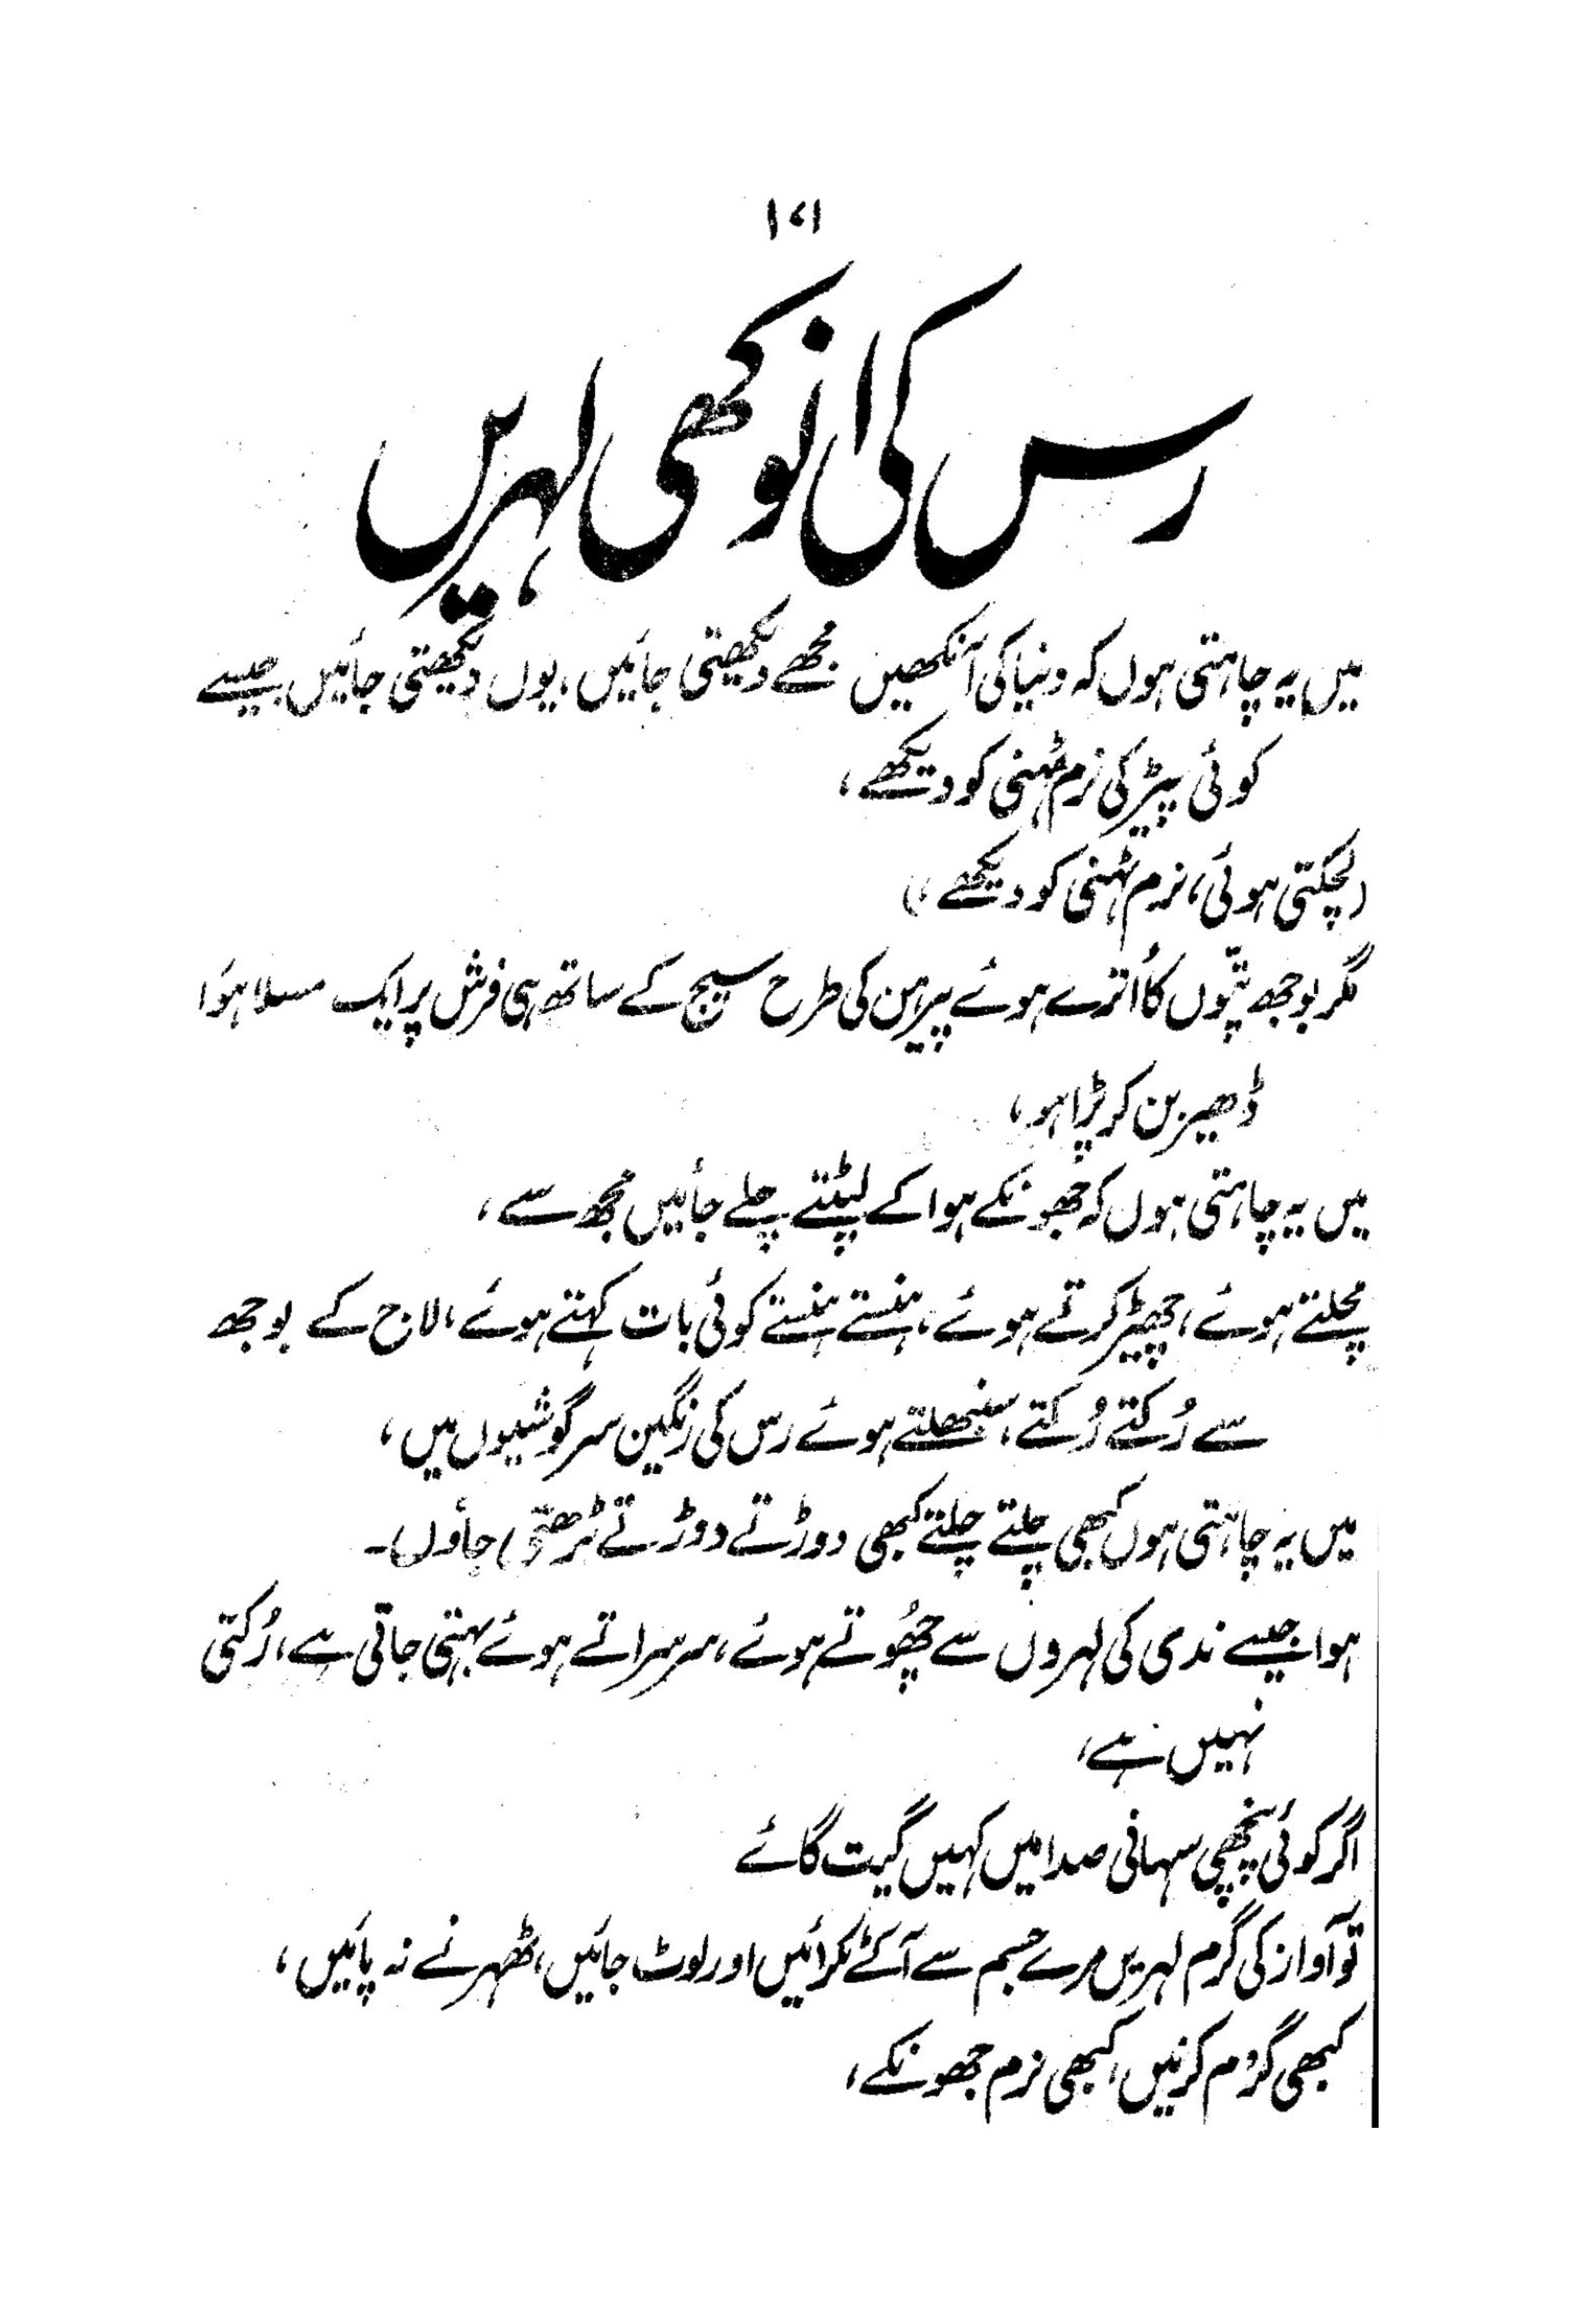 ۱۷۱
رس کی انوکھی لہریں
میں یہ چاہتی ہوں کہ دنیا کی آنکھیں مجھے دیکھتی جائیں، یوں دیکھتی جائیں جیسے
کوئی پیڑ کی نرم ٹہنی کو دیکھے،
(لچکتی ہوئی، نرم ٹہنی کو دیکھے،)
مگر بوجھ پتّوں کا اُترے ہوئے پیرہن کی طرح سیج کے ساتھ ہی فرش پر ایک مسلا ہوٗا
ڈھیر بن کر پڑا ہو،
میں یہ چاہتی ہوں کہ جھونکے ہوا کے لپٹتے چلے جائیں مجھ سے،
مچلتے ہوئے، چھیڑ کرتے ہوئے، ہنستے ہنستے کوئی بات کہتے ہوئے، لاج کے بوجھ
سے رُکتے رُکتے، سنبھلتے ہوئے رس کی رنگین سرگوشیوں میں،
میں یہ چاہتی ہوں کبھی چلتے چلتے کبھی دوڑتے دوڑتے بڑھتی جاؤں۔
ہوا جیسے ندی کی لہروں سے چھُوتے ہوئے، سرسراتے ہوئے بہتی جاتی ہے، رُکتی
نہیں ہے،
اگر کوئی پنچھی سہانی صدا میں کہیں گیت گائے
تو آواز کی گرم لہریں مرے جسم سے آ کے ٹکرائیں اور لوٹ جائیں، ٹھہرنے نہ پائیں،
کبھی گرم کرنیں، کبھی نرم جھونکے،